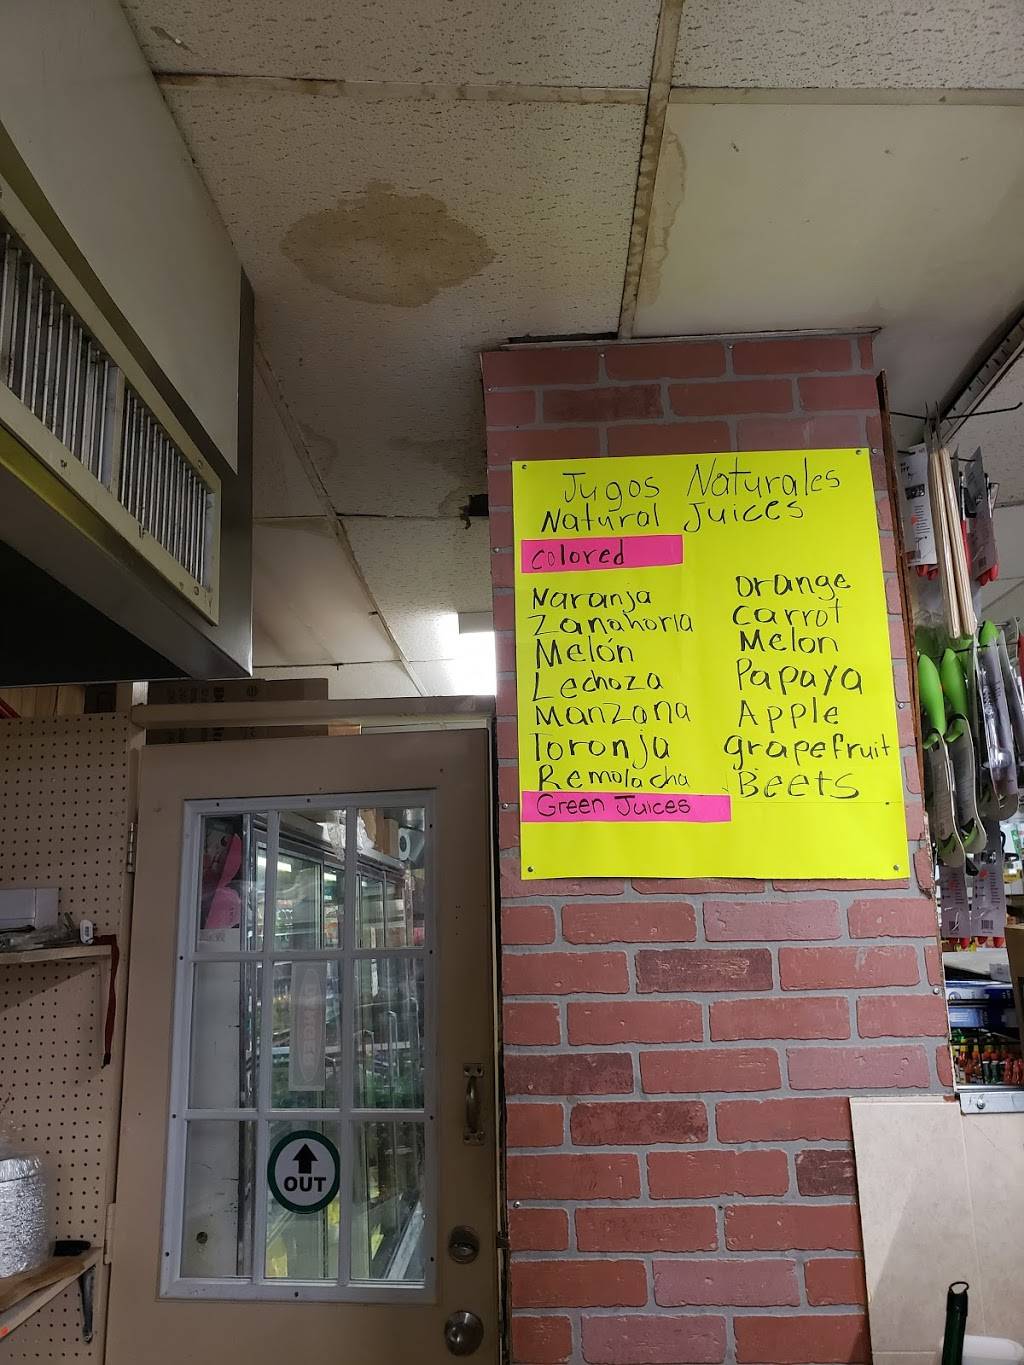 Jugos Naturales
Natural Juices
colored
Naranja orange
Zanahoria carrot
Melón Melon
Lechoza Papaya
Manzana Apple
Toronja grapefruit
Remolacha Beets
Green Juices
OUT